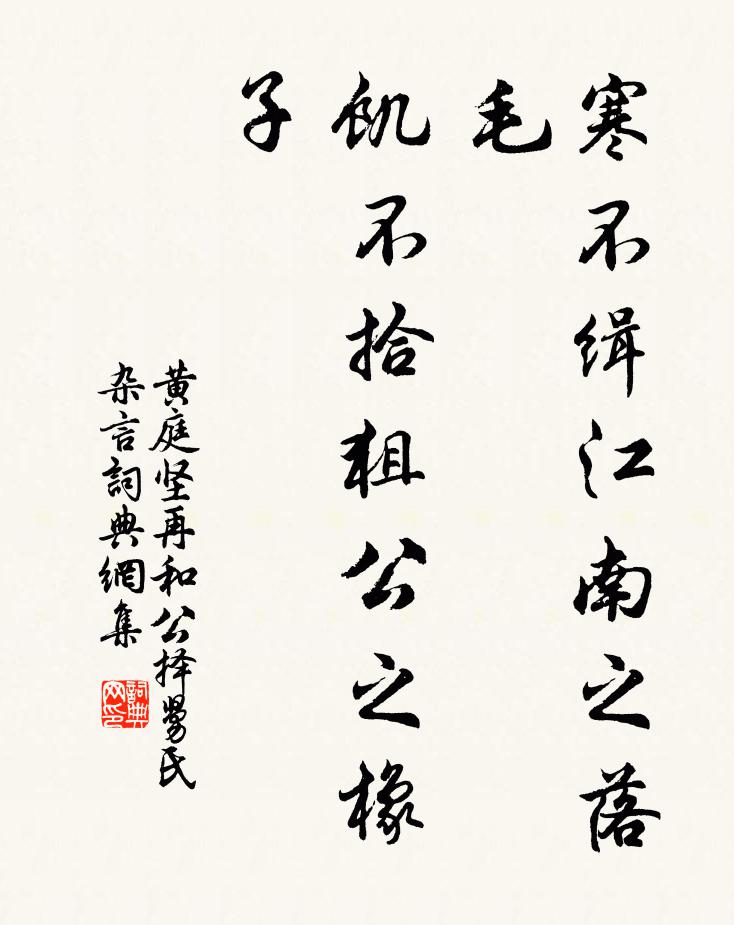 寒不缉江南之落
毛
飢不拾狙公之橡
子
黄庭坚再和公择舅氏
杂言詞典網集
詞典
网印